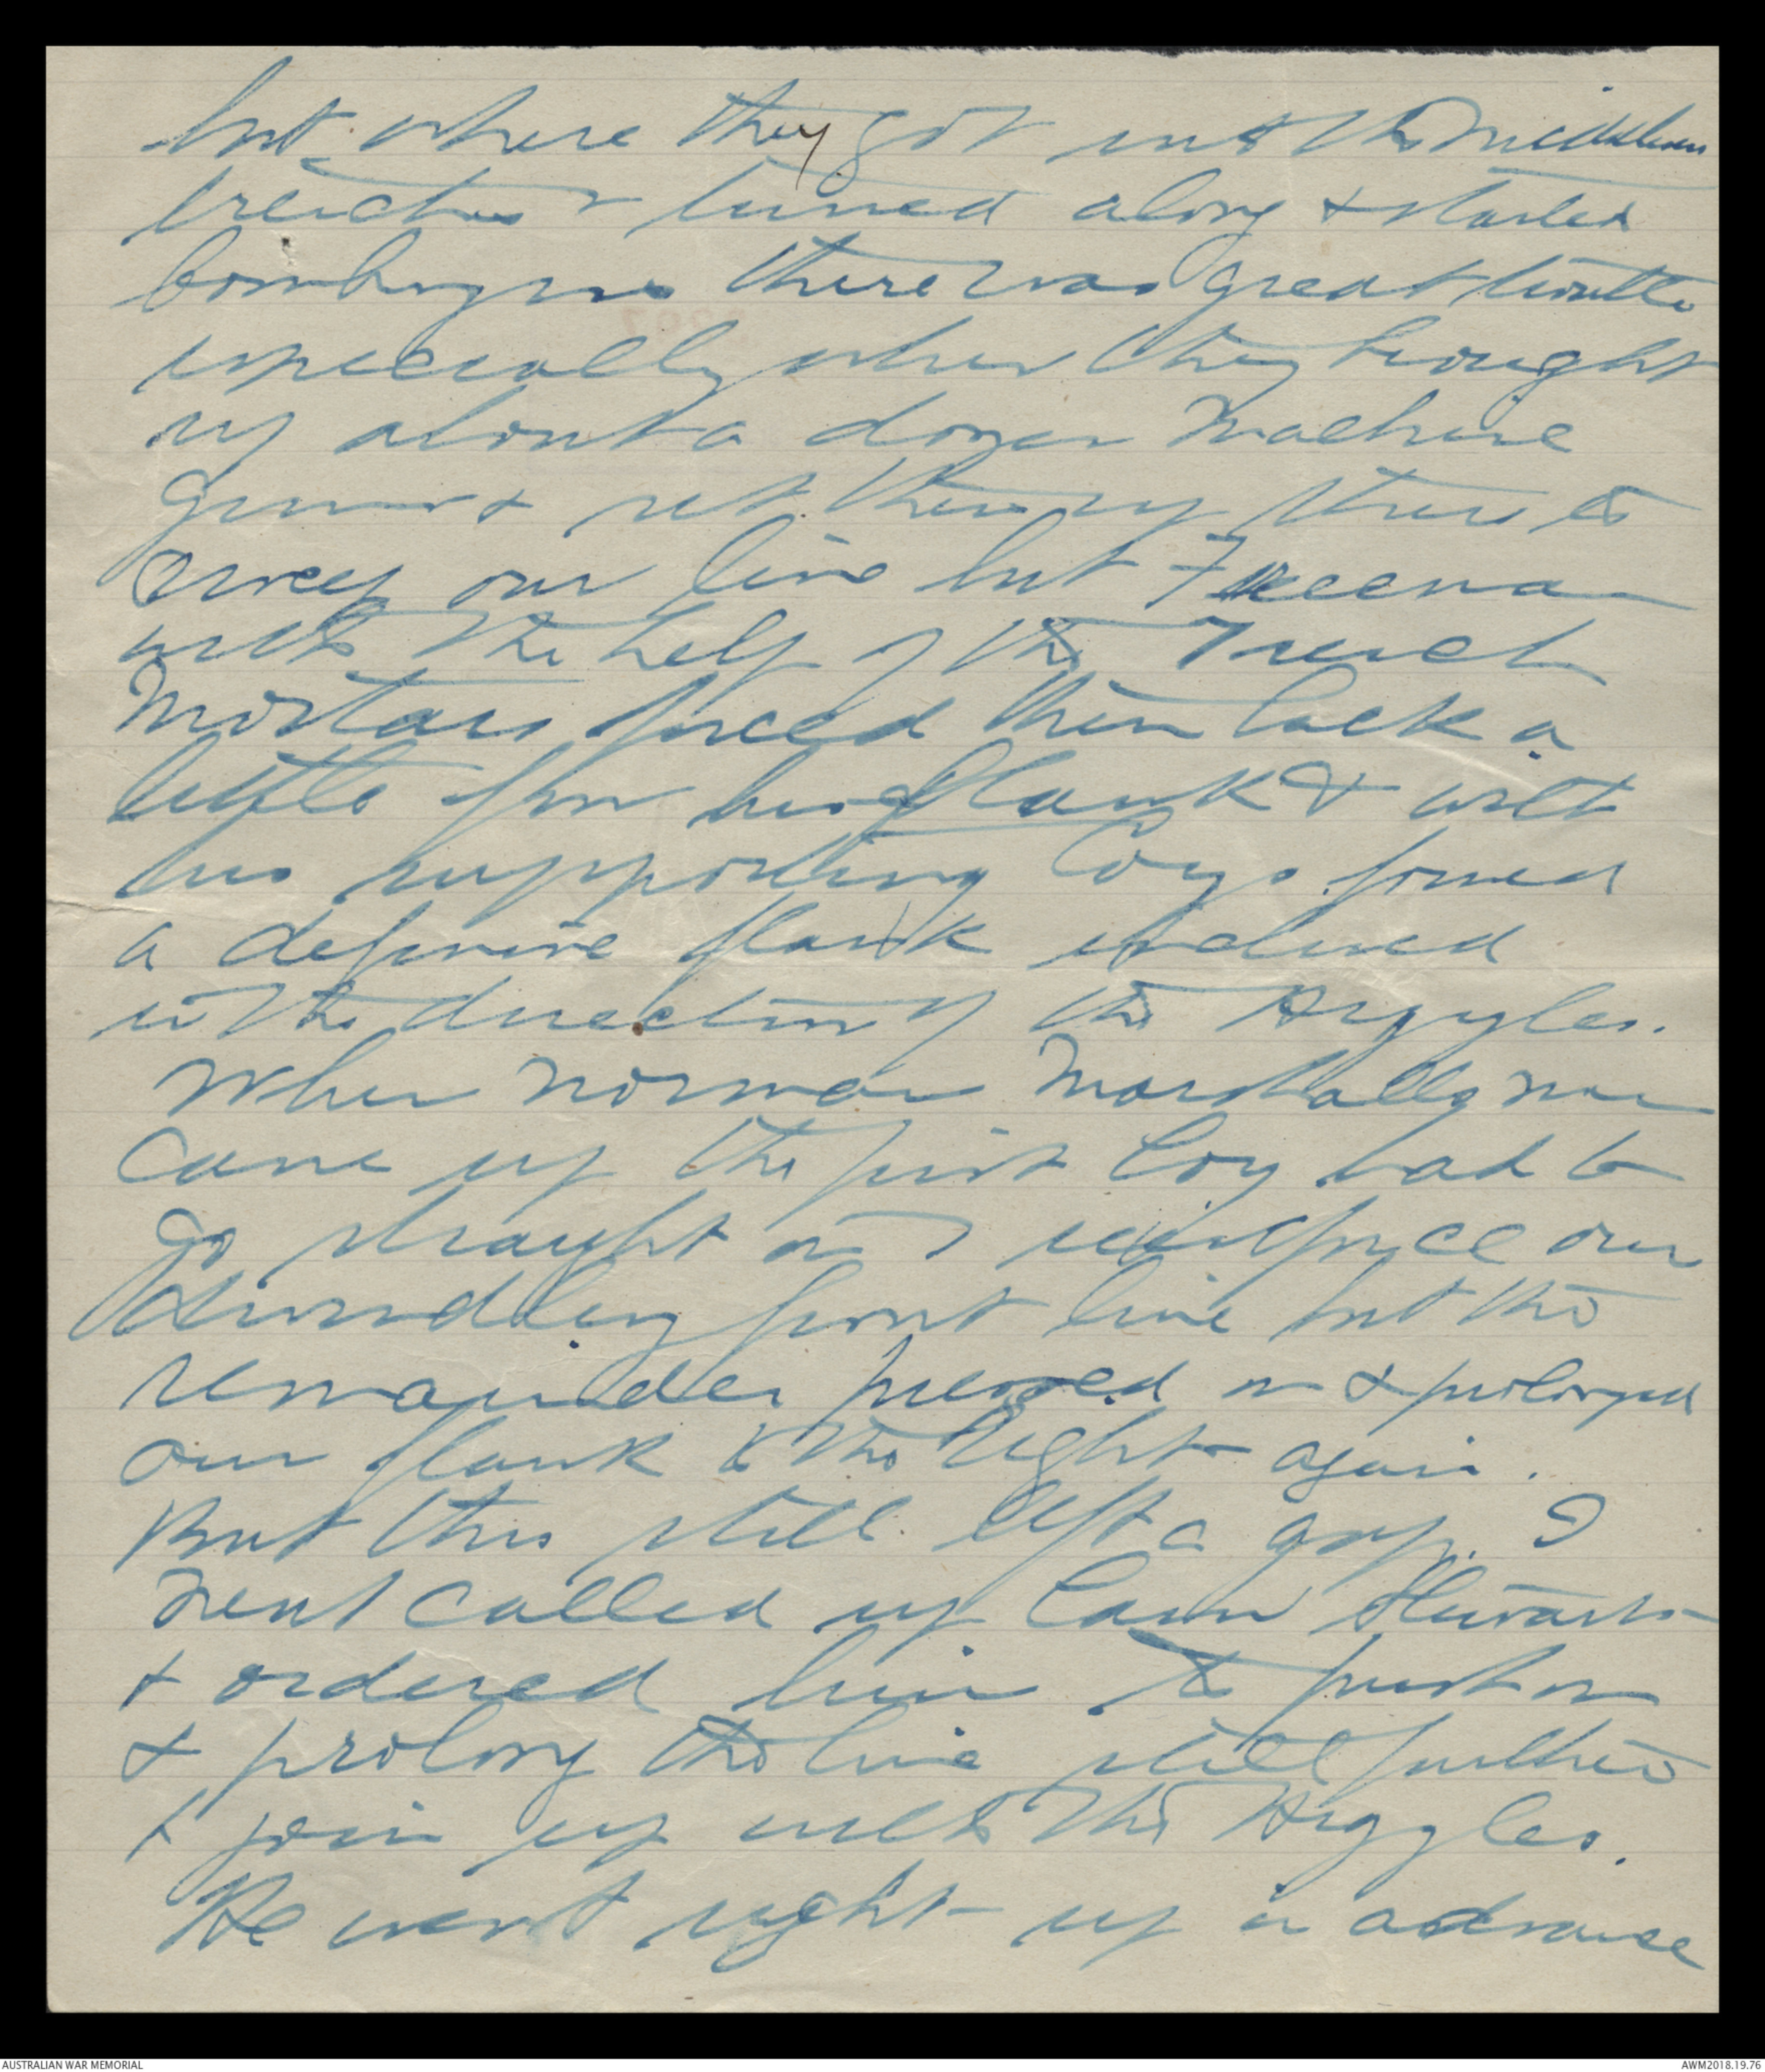 but where they got into the Middlesex
trenches & turned along & started
bombing us there was great trouble
especially when they brought
up about a dozen Machine
Guns & set them up there to
sweep our line but Freeman
with the help of the Trench
Mortars forced them back a
little from his flank & with
his supporting Coys formed
a defensive flank
in the direction of the Argyles.
When Norman Marshalls men
came up the first Coy had to
go straight on & reinforce our
dwindling front line but the
remainder pressed on & prolonged
our flank to the right again.
But this still left a gap. I
next called up Cam Stewart
& ordered him to push on
& prolong the line still further
& join up with the Argyles.
He went right up in advance
AUSTRALIAN WAR MEMORIAL
AWM2018.19.76